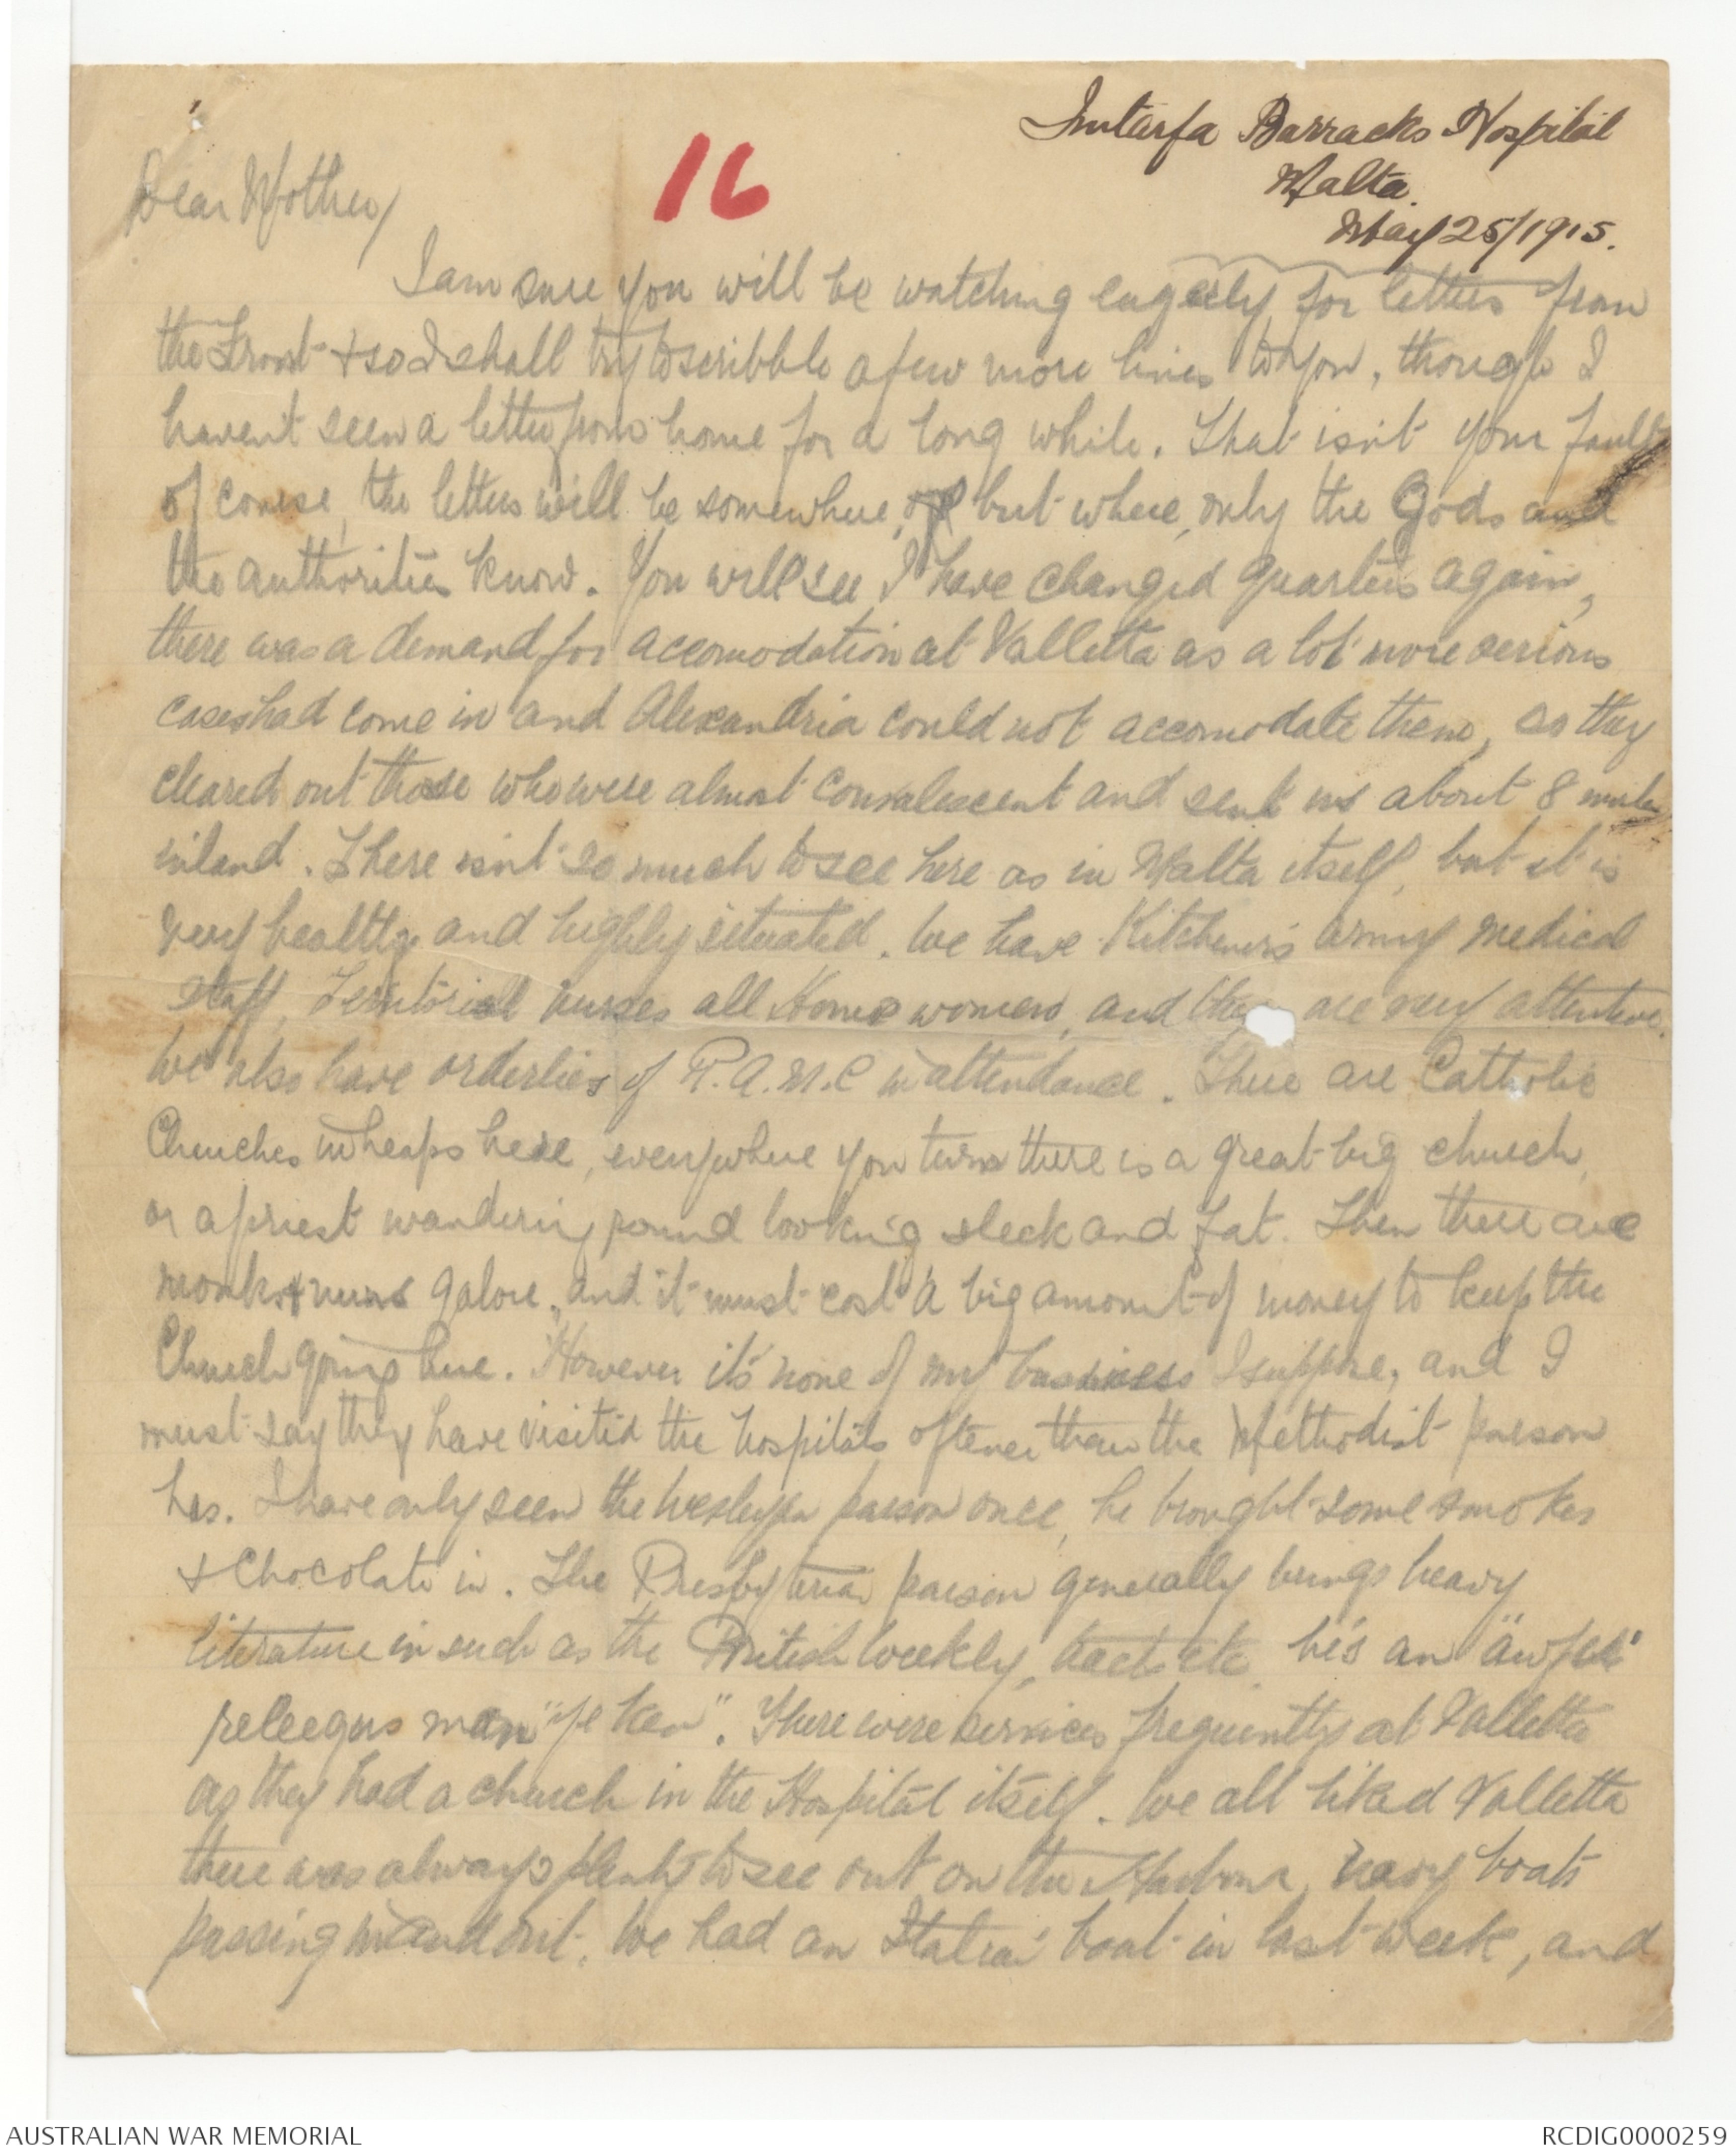 Imtarfa Barracks Hospital
Malta.
May 25/1915.
16
Dear Mother/
I am sure you will be watching eagerly for letters from
the Front & so I shall try to scribble a few more lines to you, though I
havent seen a letter from home for a long while. That isn't your fault
of course, the letters will be somewhere, but where, only the Gods and
the authorities know. You will see I have changed quarters again,
there was a demand for accomodation at Valletta as a lot more serious
cases had come in and Alexandria could not accomodate them, so they
cleared out those who were almost convalescent and sent us about 8 miles
inland. There isn't so much to see here as in Malta itself, but it is
very healthy and highly situated. We have Kitchener's army medical
staff, Territorial nurses all Home women, and they are very attentive.
We also have orderlies of R.A.M.C in attendance. There are Catholic
Churches in heaps here, everywhere you turn there is a great big church,
or a priest wandering round looking sleek and fat. Then there are
monks & nuns galore, and it must cost a big amount of money to keep the
Church going here. However it's none of my business I suppose, and I
must say they have visited the hospitals oftener than the Methodist parson
has. I have only seen the Wesleyan parson once, he brought some smokes
& Chocolate in. The Presbyterian parson generally brings heavy
literature in such as the British Weekly, tracts etc, he's an "awfu'
releegus man "ye ken". There were services frequently at Valletta
as they had a church in the Hospital itself. We all liked Valletta
there was always plenty to see out on the Harbour, navy boats
passing in and out. We had an Italian boat in last week, and
AUSTRALIAN WAR MEMORIAL
RCDIG0000259